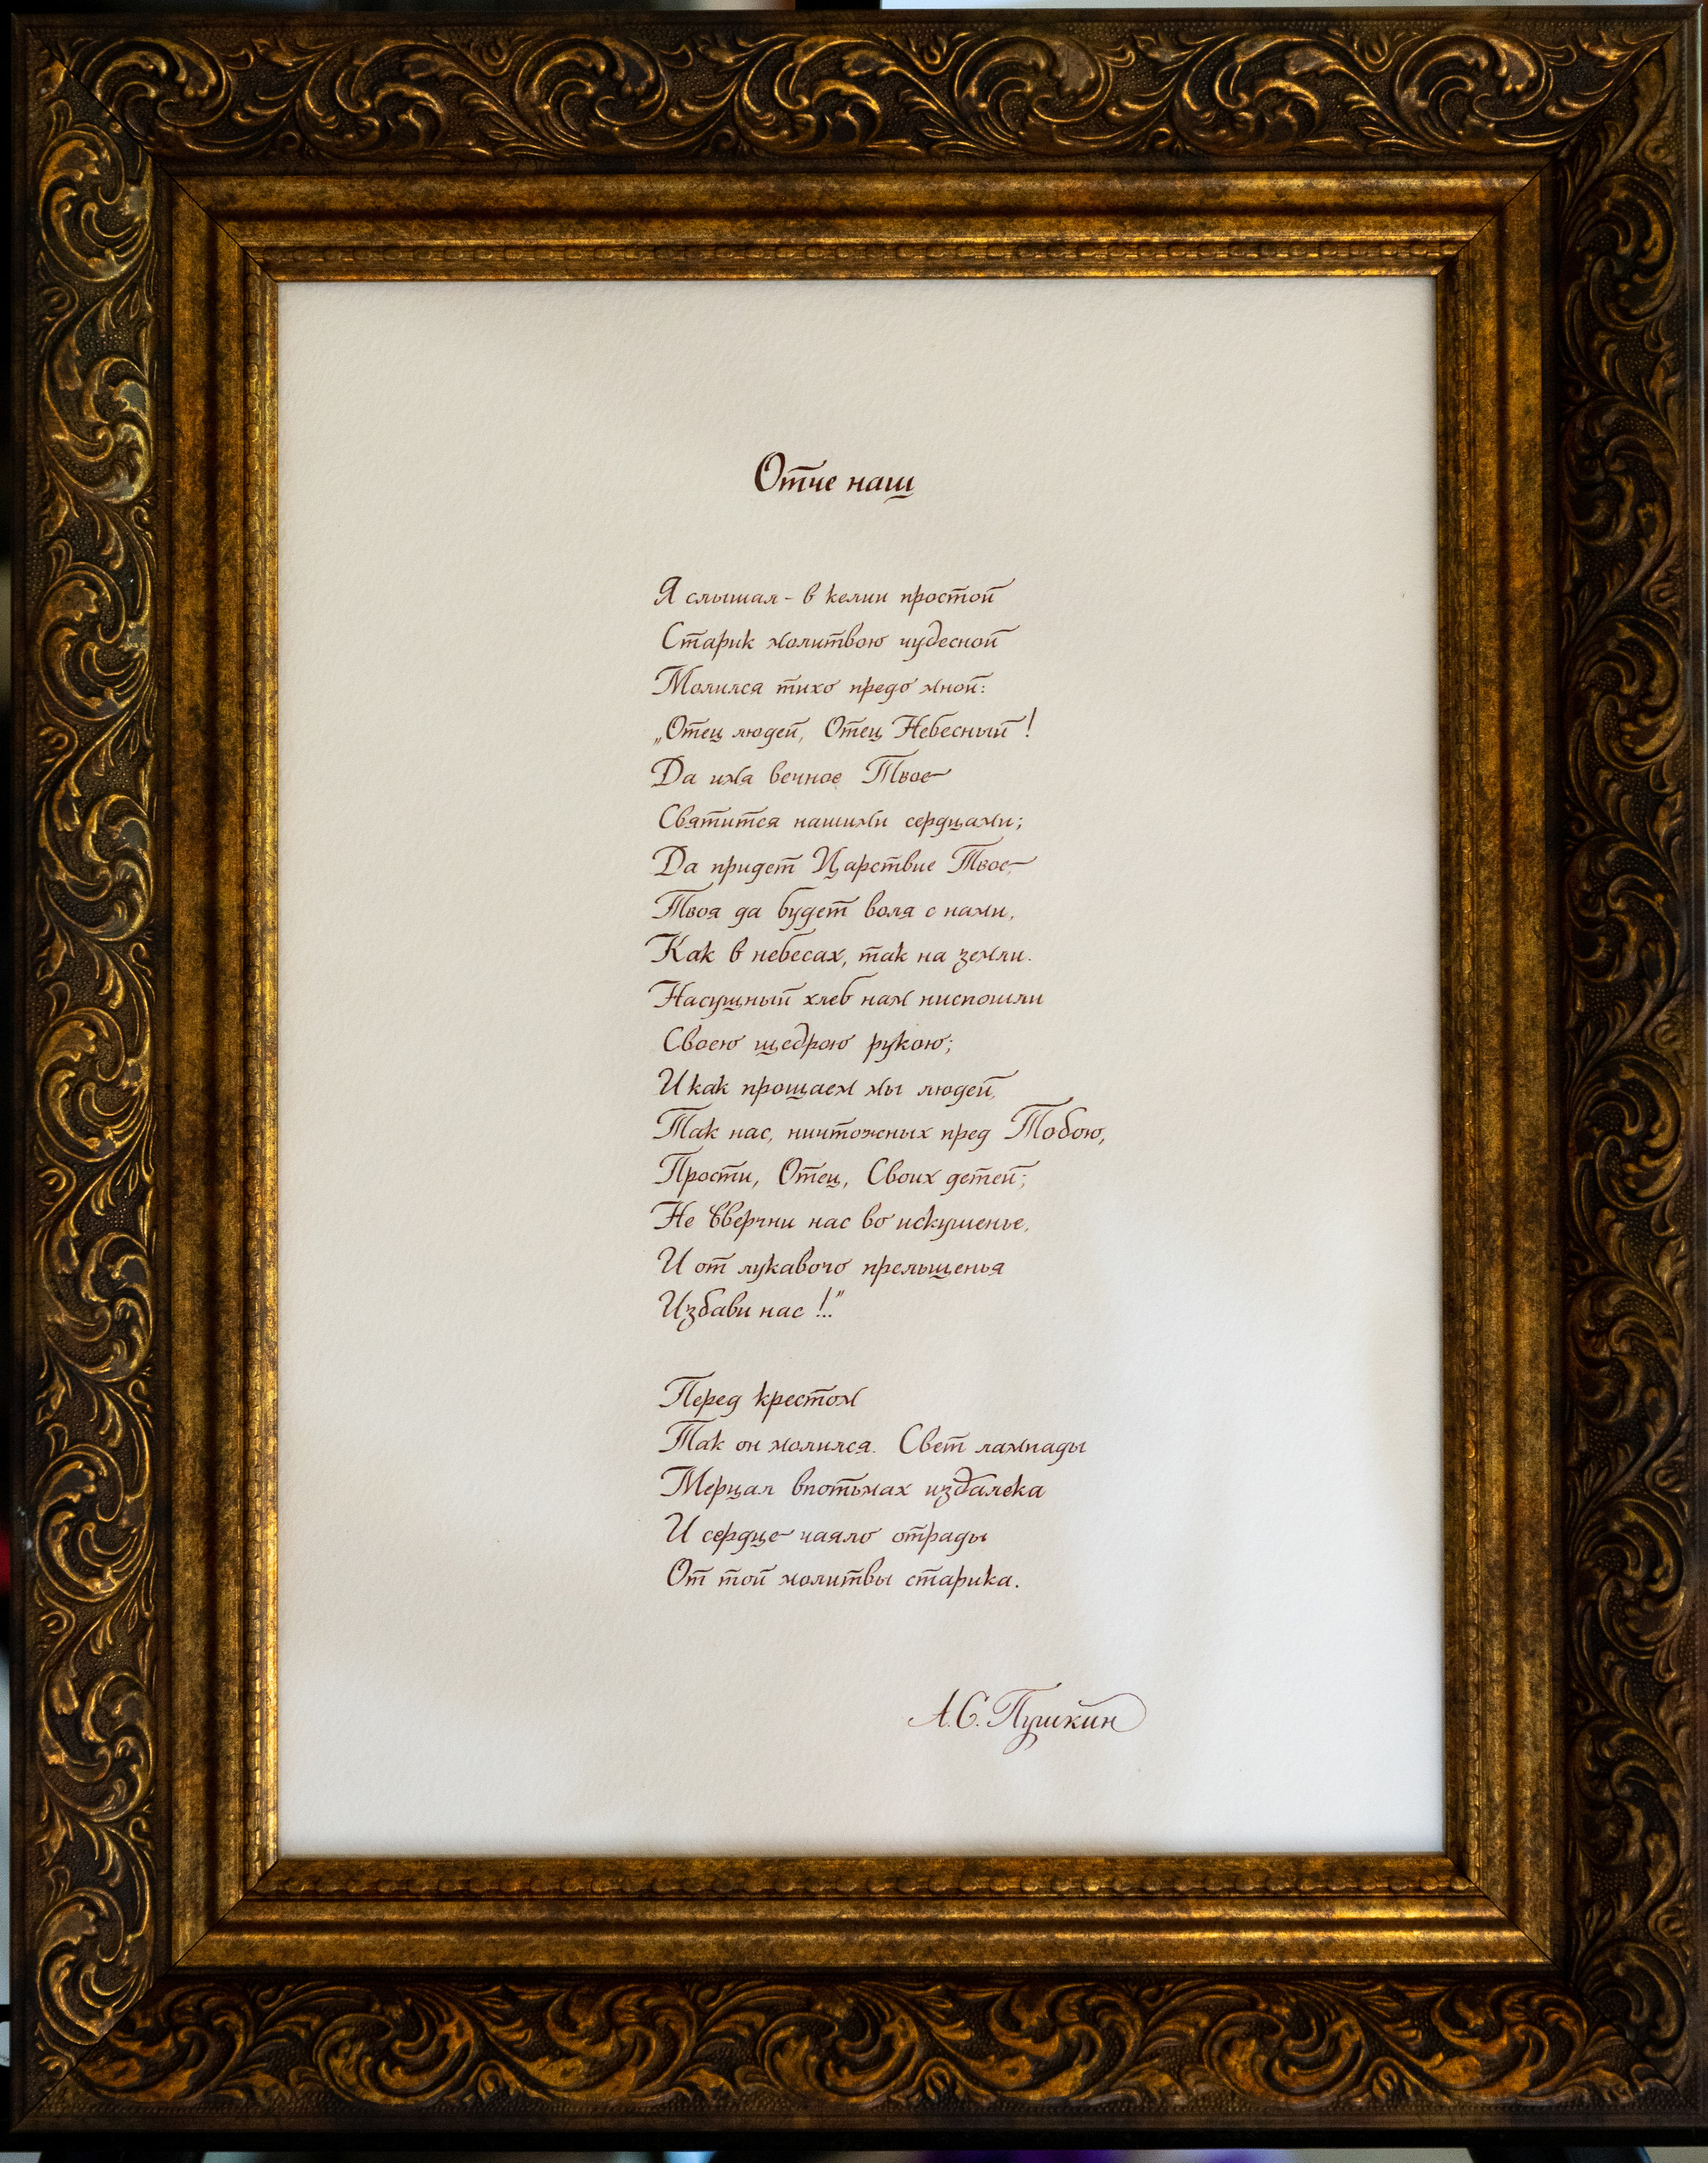 Отче наш
Я слышал - в келии простой
Старик молитвою чудесной
Молился тихо предо мной:
„Отец людей, Отец Небесный!
Да имя вечное Твое
Святится нашими сердцами;
Да придет Царствие Твое,
Твоя да будет воля с нами,
Как в небесах, так на земли.
Насущный хлеб нам ниспошли
Своею щедрою рукою;
И как прощаем мы людей,
Так нас, ничтожных пред Тобою,
Прости, Отец, Своих детей;
Не ввергни нас во искушенье,
И от лукавого прельщенья
Избави нас!.."
Перед крестом
Так он молился. Свет лампады
Мерцал впотьмах издалека
И сердце чаяло отрады
От той молитвы старика.
А.С. Пушкин